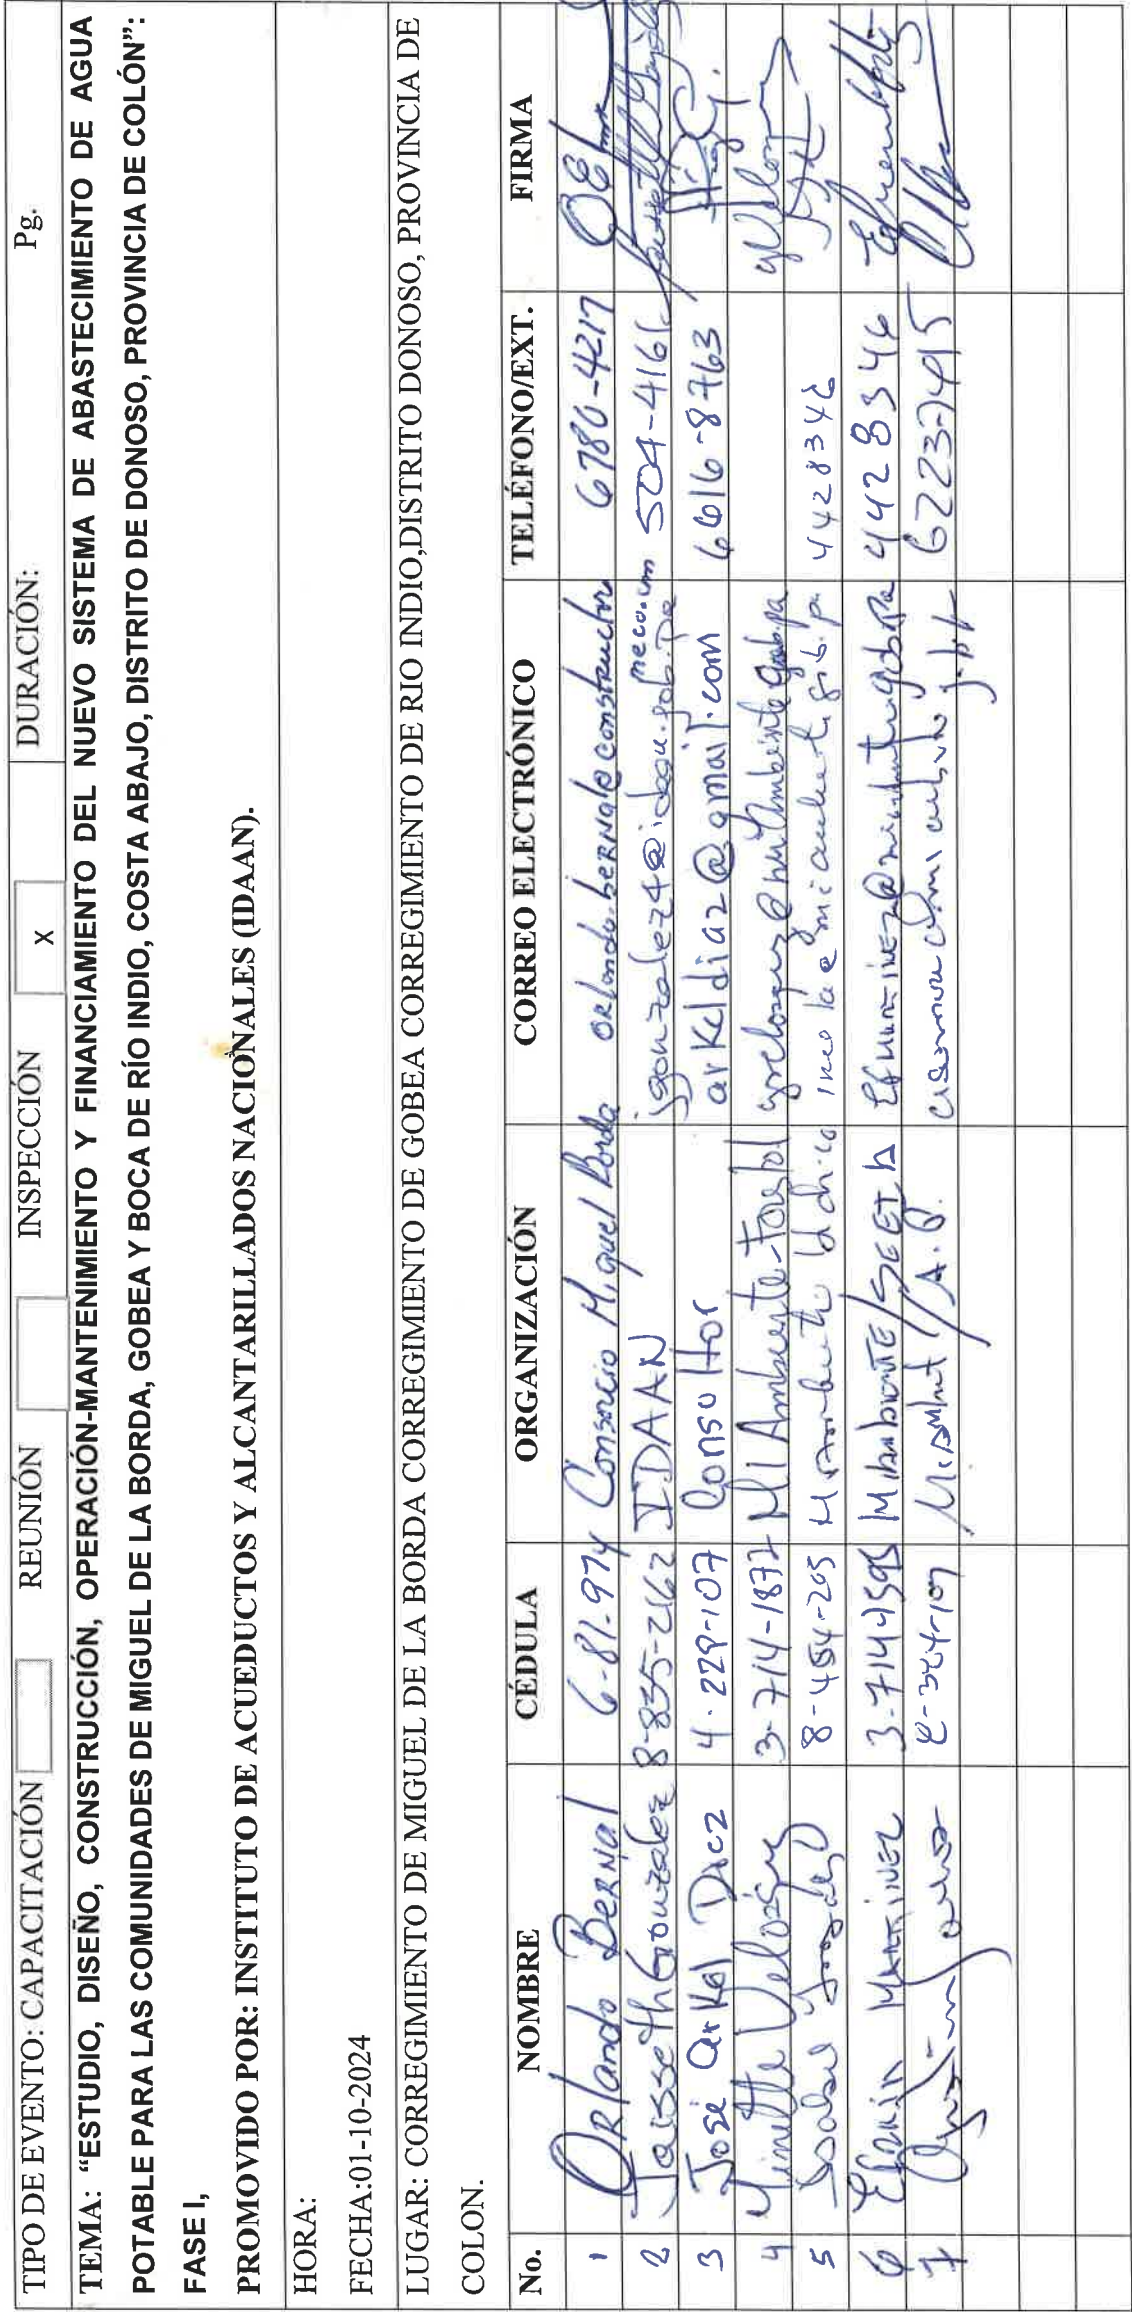 TIPO DE EVENTO: CAPACITACIÓN REUNIÓN INSPECCIÓN X DURACIÓN: Pg.
TEMA: "ESTUDIO, DISEÑO, CONSTRUCCIÓN, OPERACIÓN-MANTENIMIENTO Y FINANCIAMIENTO DEL NUEVO SISTEMA DE ABASTECIMIENTO DE AGUA
POTABLE PARA LAS COMUNIDADES DE MIGUEL DE LA BORDA, GOBEA Y BOCA DE RÍO INDIO, COSTA ABAJO, DISTRITO DE DONOSO, PROVINCIA DE COLÓN":
FASE I,
PROMOVIDO POR: INSTITUTO DE ACUEDUCTOS Y ALCANTARILLADOS NACIONALES (IDAAN).
HORA:
FECHA:01-10-2024
LUGAR: CORREGIMIENTO DE MIGUEL DE LA BORDA CORREGIMIENTO DE GOBEA CORREGIMIENTO DE RIO INDIO,DISTRITO DONOSO, PROVINCIA DE
COLON.
No. NOMBRE CÉDULA ORGANIZACIÓN CORREO ELECTRÓNICO TELÉFONO/EXT. FIRMA
1 Orlando Bernal 6-81-974 Consorcio Miguel Borda orlando.bernal@constructora meco.com 6780-4217
2 Jaisseth González 8-835-2162 IDAAN jgonzalez4@idaan.gob.pa 504-4161
3 José arkel Diaz 4-229-107 Consultor arkeldiaz@gmail.com 6616-8763
4 Yinette Velásquez 3-714-1872 MI Ambiente-Forestal yvelasquez@miambiente.gob.pa
5 8-484-205 Mi ambiente Hidrico 4428346
6 Efraín Martínez Miambiente/SEEIA 4428346
7 Miambient/A.P. 6223-7495